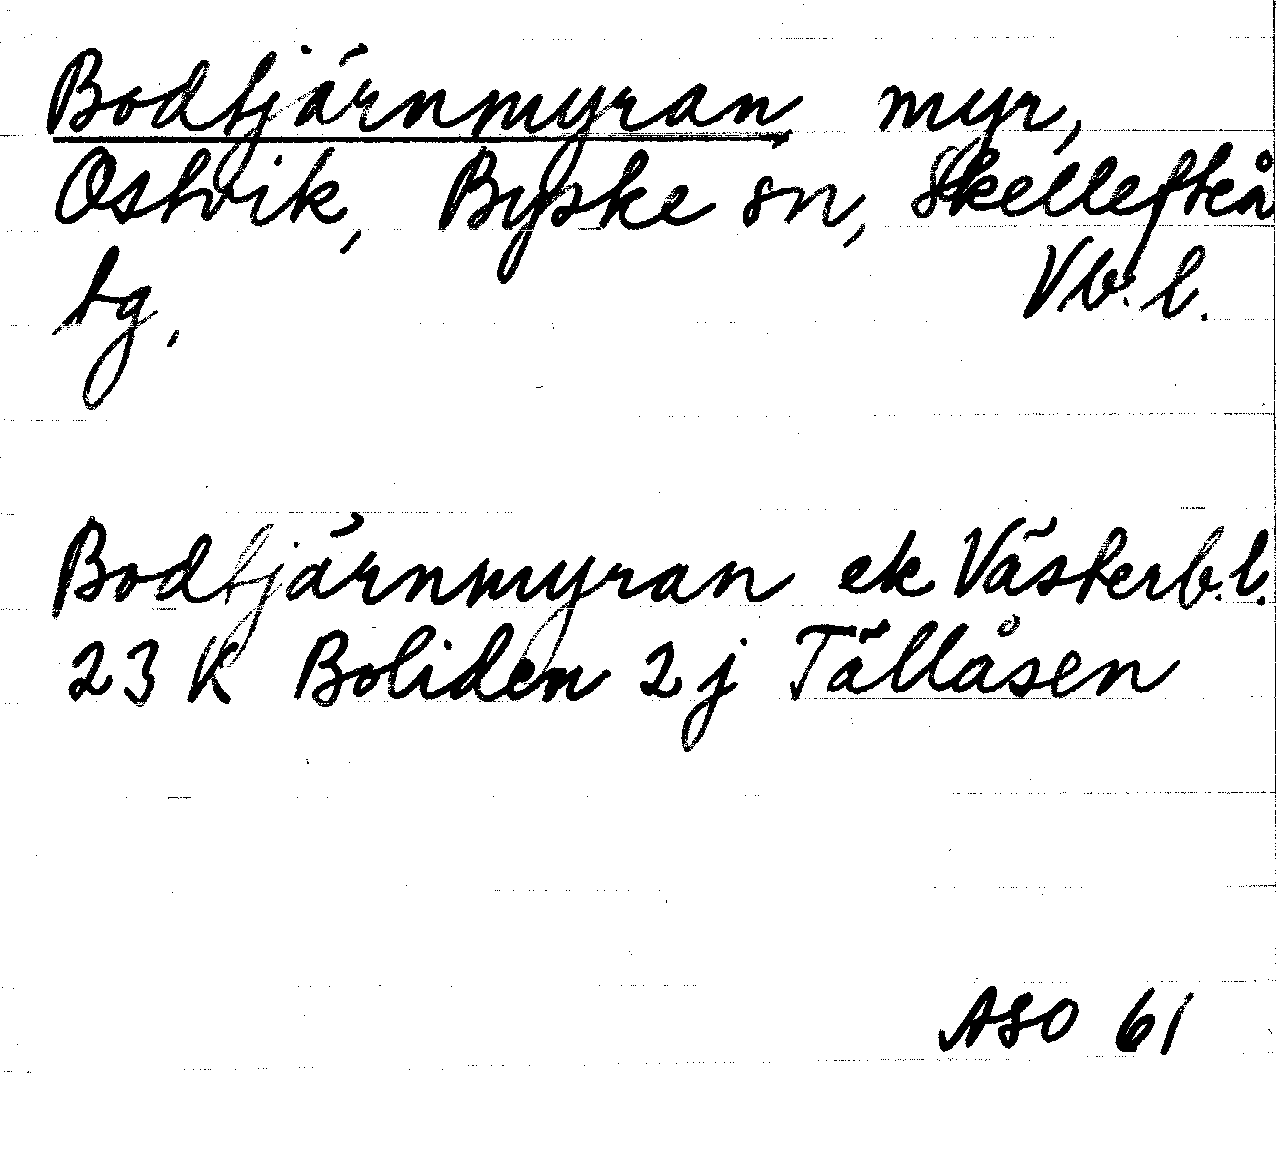 Bodtjärnmyran myr,
Ostvik, Byske sn, Skellefteå
tg, Vb. l.
Bodtjärnmyran ek Västerb. l.
23 K Boliden 2 j Tällåsen
ASO 61